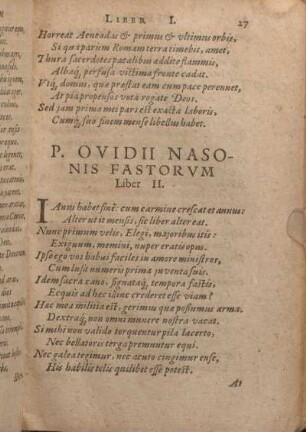 LIBER I. 27
Horreat Aeneadas & primus & vltimus orbis,
Si qua parùm Romam terra timebit, amet,
Thura sacerdotes pacalibus addite flammis,
Albaq́, perfusa victima fronte cadat.
Vtq́, domus, quæ præstat eam cum pace perennet,
At pia propensos vota rogate Deos.
Sed jam prima mei pars est exacta laboris,
Cumq́, suo finem mense libellus habet.
P. OVIDII NASO-
NIS FASTORVM
Liber II.
IAnus habet finē: cum carmine crescat et annus:
Alter ut it mensis, sic liber alter eat.
Nunc primùm velis, Elegi, majoribus itis:
Exiguum, memini, nuper eratis opus.
Ipse ego vos habui faciles in amore ministros,
Cum lusit numeris prima juventa suis.
Idem sacra cano, signataq́, tempora fastis:
Ecquis ad hec illinc crederet esse viam?
Hac mea militia est, gerimus quæ possumus arma.
Dextraq́, non omni munere nostra vacat.
Si mihi non valido torquentur pila lacerto,
Nec bellatoris terga premuntur equi.
Nec galea tegimur, nec acuto cingimur ense,
His habilis telis quilibet esse potest.
At